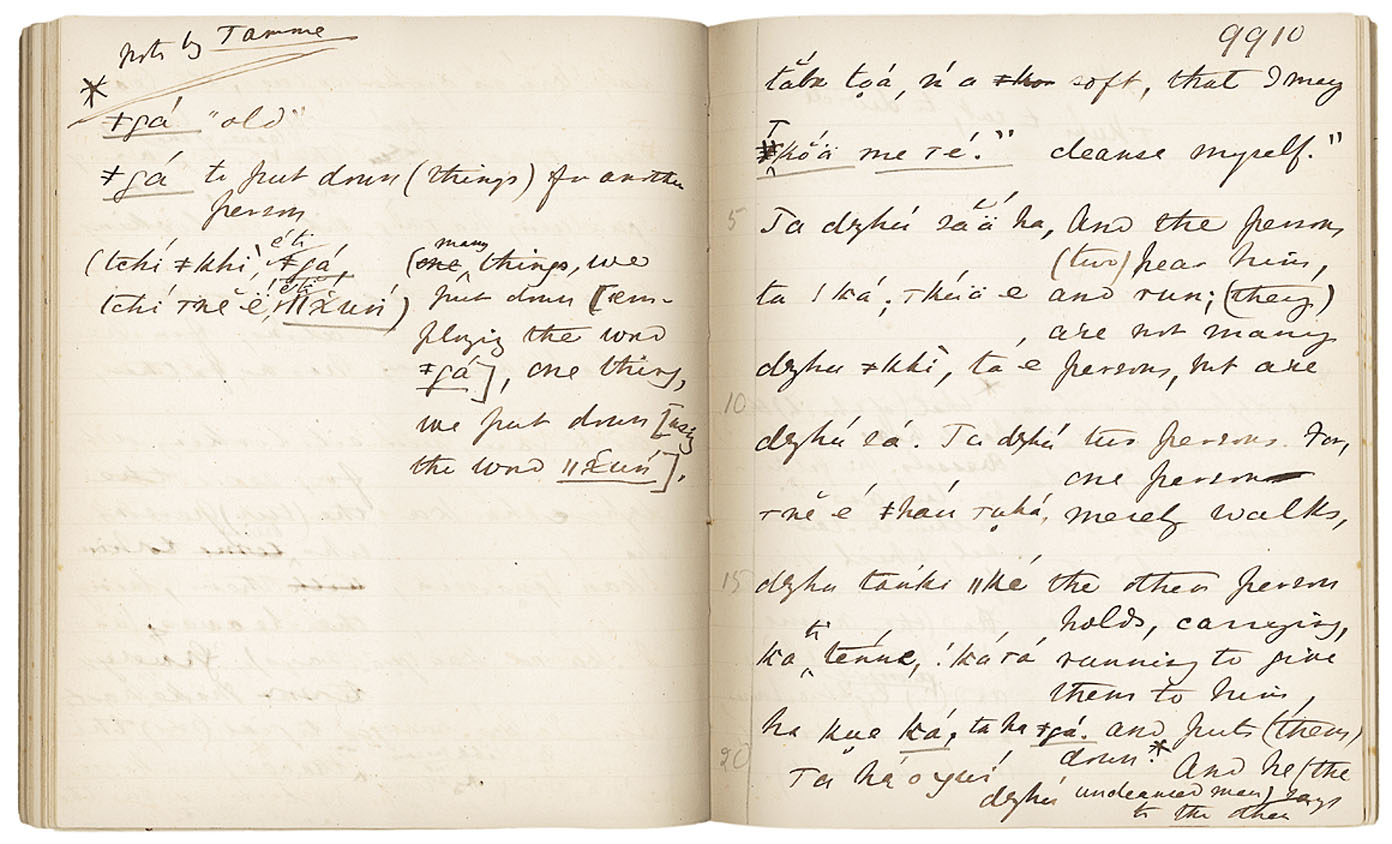 Note by Tamme
*
ǂgá "old"
ǂgá to put down (things) for another
person
(tchí ǂkhì, éti ǂgá,
tchí ǀnĕ ĕ, éti ǁžuń)
(one many things, we
put down [em-
ploying the word
ǂgá], one thing,
we put down [using
the word ǁžuń].
9910
tăba ṭoá, ń a ǂkoo soft, that I may
ǀkŏä me ré." cleanse myself."
5 Ta dzhú săä́ ha, And the persons
(two) hear him,
ta !ká; ǀkúä e and run; (they)
are not many
dzhu ǂkhì, tá e persons, but are
10
dzhú sá. Ta dzhú two persons. For,
one person
ǀnĕ é ǂháu ṭuhá, merely walks,
15 dzhu tańki ǁké the other person
holds, carrying,
ka ti ténne, !kárá running to give
them to him,
ha kue ká, ta ha ǂgá. and puts (them)
20 down.* And he (the
Ta há o yuí
dzhú uncleansed man) says
to the other